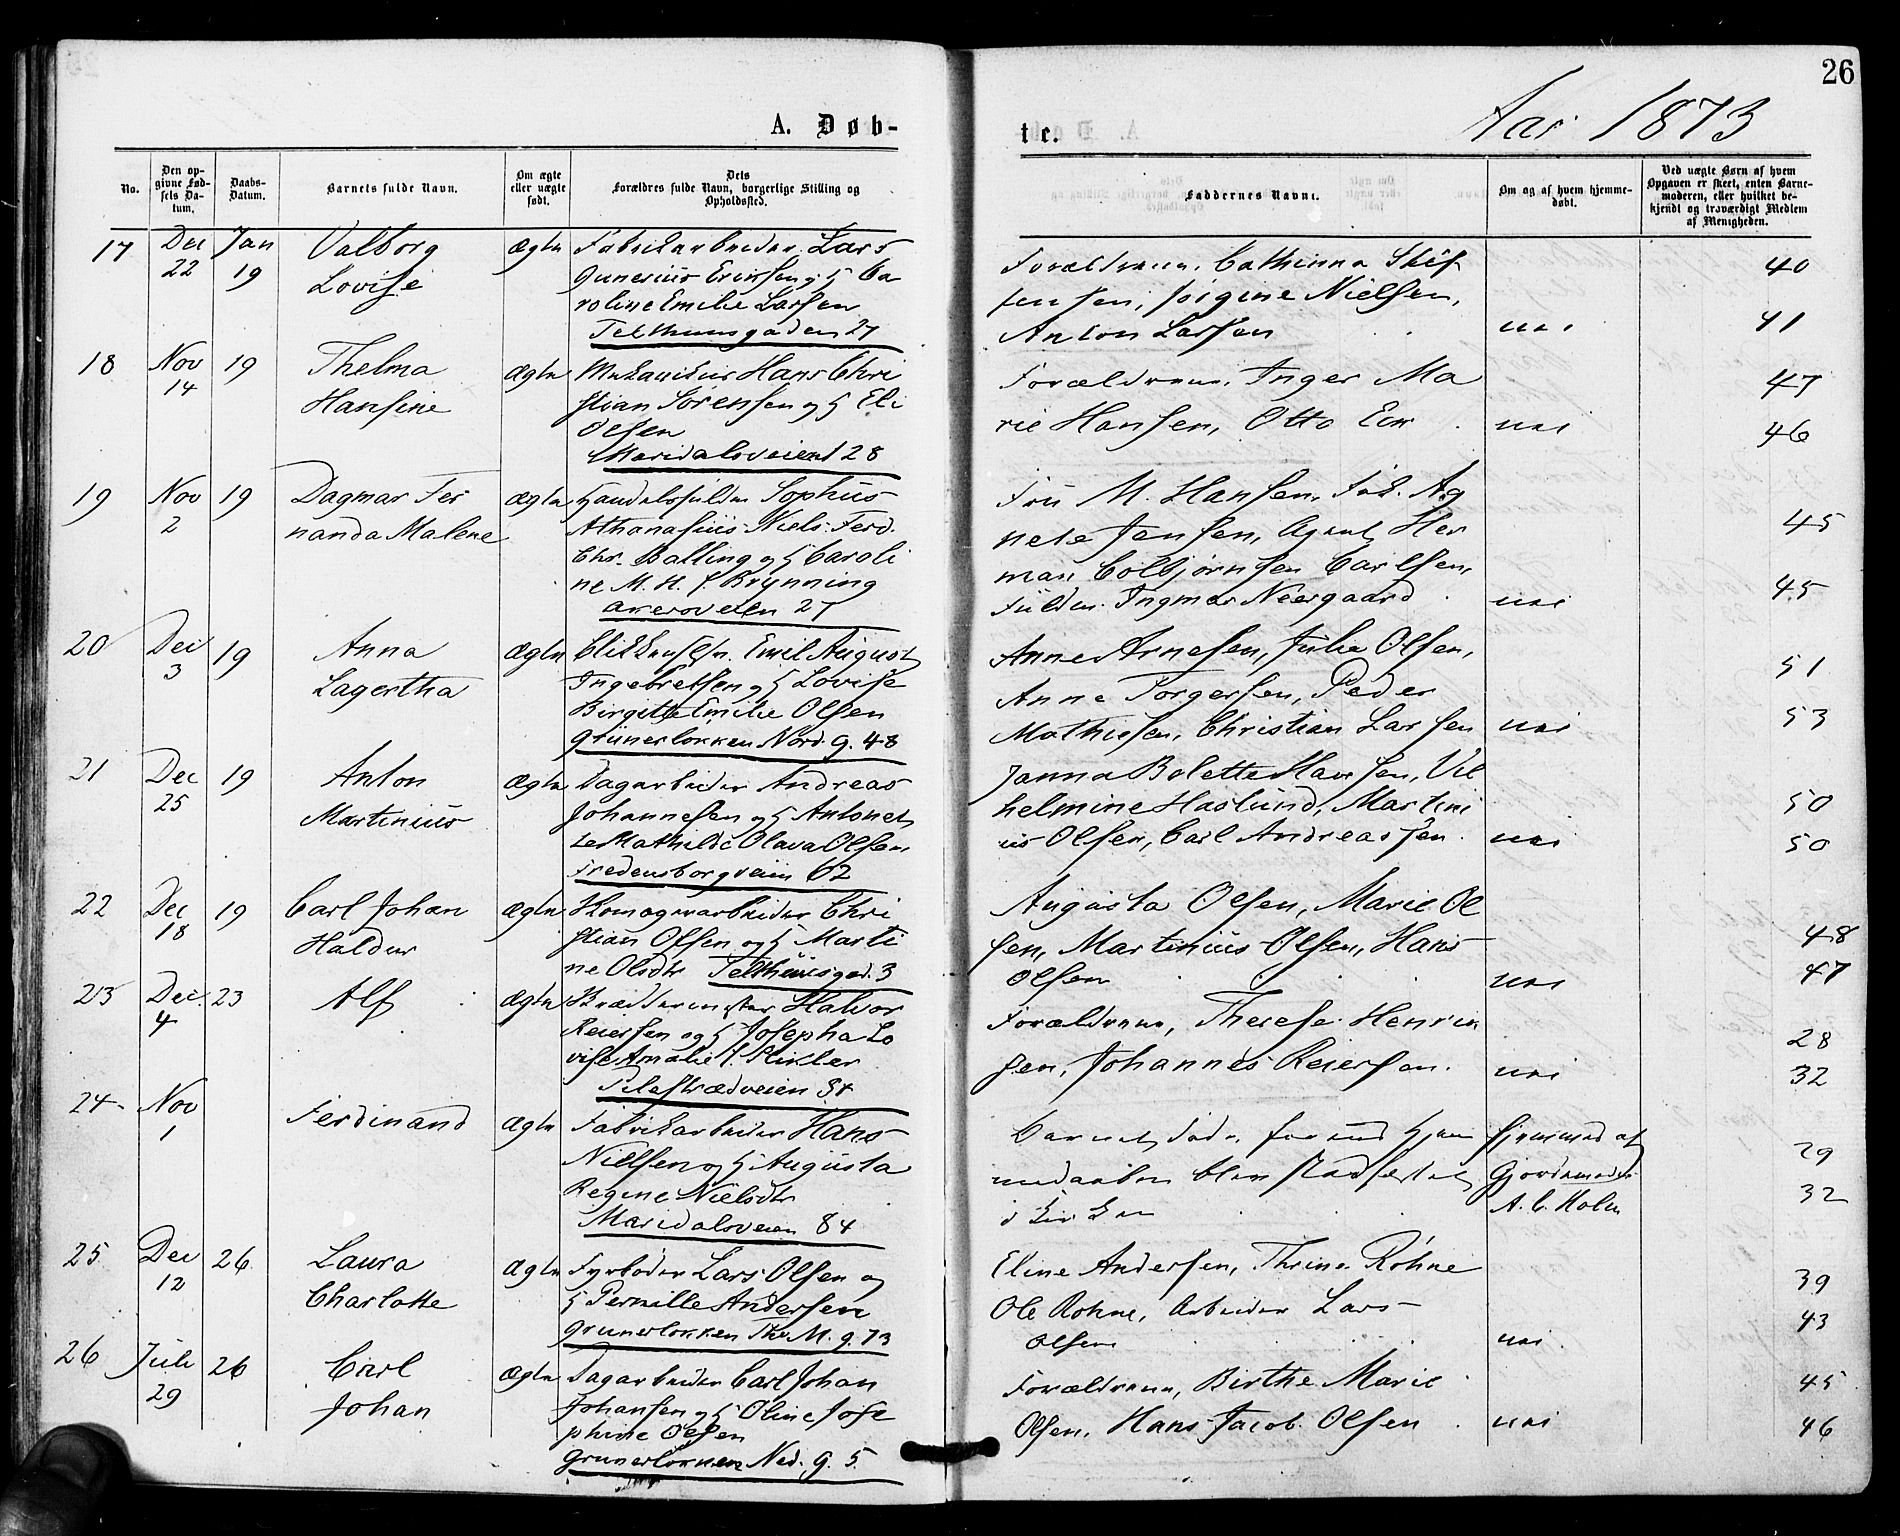 26
A. Døb-
te.
Aar 1873
No.
Den op-
givne Fød-
sels Da-
tum.
Daabs-
Datum.
Barnets fulde Navn.
Om ægte
eller uægte
født.
Dets
Forældres fulde Navn, borgerlige Stilling og
Opholdssted.
Faddernes Navne.
Om og af hvem hjemme-
døbt.
Ved uægte Børn af hvem
Opgaven er skeet, enten Barne-
moderen, eller hvilket be-
kjendt og troværdigt Medlem
af Menigheden.
17 Dec 22 Jan 19 Valborg Lovise ægte
Fabrikarbeider Lars
Gunerius Eriksen og H Ca
roline Emilie Larsen
Telthuusgaden 27
Forældrene, Cathinna Stef
fensen, Jørgine Nielsen,
Anton Larsen
nei
40
41
18 Nov 14 19 Thelma Hansine ægte
Mekanikus Hans Chri
stian Sørensen og H Eli
Olsen
Maridalsveien 128
Forældrene, Inger Ma
rie Hansen, Otto
nei
47
46
19 Nov 2 19 Dagmar Fer
nanda Malene ægte
Handelsfuldm Sophus
Athanasius Niels Ferd.
Chr. Balling og H Caroli
ne M. H. f. Brynning
Akersveien 27
Fru M. Hansen, Frk. Ag
nete Jensen, Agent Her
man Colbjørnsen Carlsen,
Fuldm. Ingmar Neergaard
nei
45
45
20 Dec 3 19 Anna Lagertha ægte
Emil August
Ingebretsen og H Lovise
Birgitte Emilie Olsen
Grünerløkken Nord. g. 48
Anne Arnesen, Julie Olsen,
Anne Torgersen, Peder
Mathiesen, Christian Larsen
nei
51
53
21 Dec 25 19 Anton Martinius ægte
Dagarbeider Andreas
Johannesen og H Antonet
te Mathilde Olava Olsen
Fredensborgveien 62
Janna Bolette Hansen, Vil
helmine Haslund, Martini
us Olsen, Carl Andreassen
nei
50
50
22 Dec 18 19 Carl Johan Haldur ægte
Skomagerarbeider Chri
stian Olsen og H Marti
ne Olsdtr Telthuusgad. 3
Augusta Olsen, Marie Ol
sen, Martinius Olsen, Hans
Olsen
nei
48
47
23 Dec. 4 23 Alf ægte
Halvor
Reiersen og H Josepha Lo
vise Amalie f.
Pilestrædveien 34
Forældrene, Therese Henrik
sen, Johannes Reiersen.
nei
28
32
24 Nov 1 Ferdinand ægte
Fabrikarbeider Hans
Nielsen og H Augusta
Regine Nielsdtr
Maridalsveien 84
Barnet døde førend Hjem
medaaben blev stadfæstet
i Kirken
Hjemmed af
Gjordemoder
A. C. Holm
29
32
25 Dec 12 26 Laura Charlotte ægte
Fyrbøder Lars Olsen og
H Pernille Andersen
Grünerløkken Thv. M. g. 73
Eline Andersen, Thrine Röhne
Ole Röhne, Arbeider Lars
Olsen
nei.
39
43
26 Juli 29 26 Carl Johan ægte
Dagarbeider Carl Johan
Johansen og H Oline Jose
phine Olsen
Grünerløkken Ned. g. 5
Forældrene, Birthe Marie
Olsen, Hans Jacob Olsen
nei
45
46